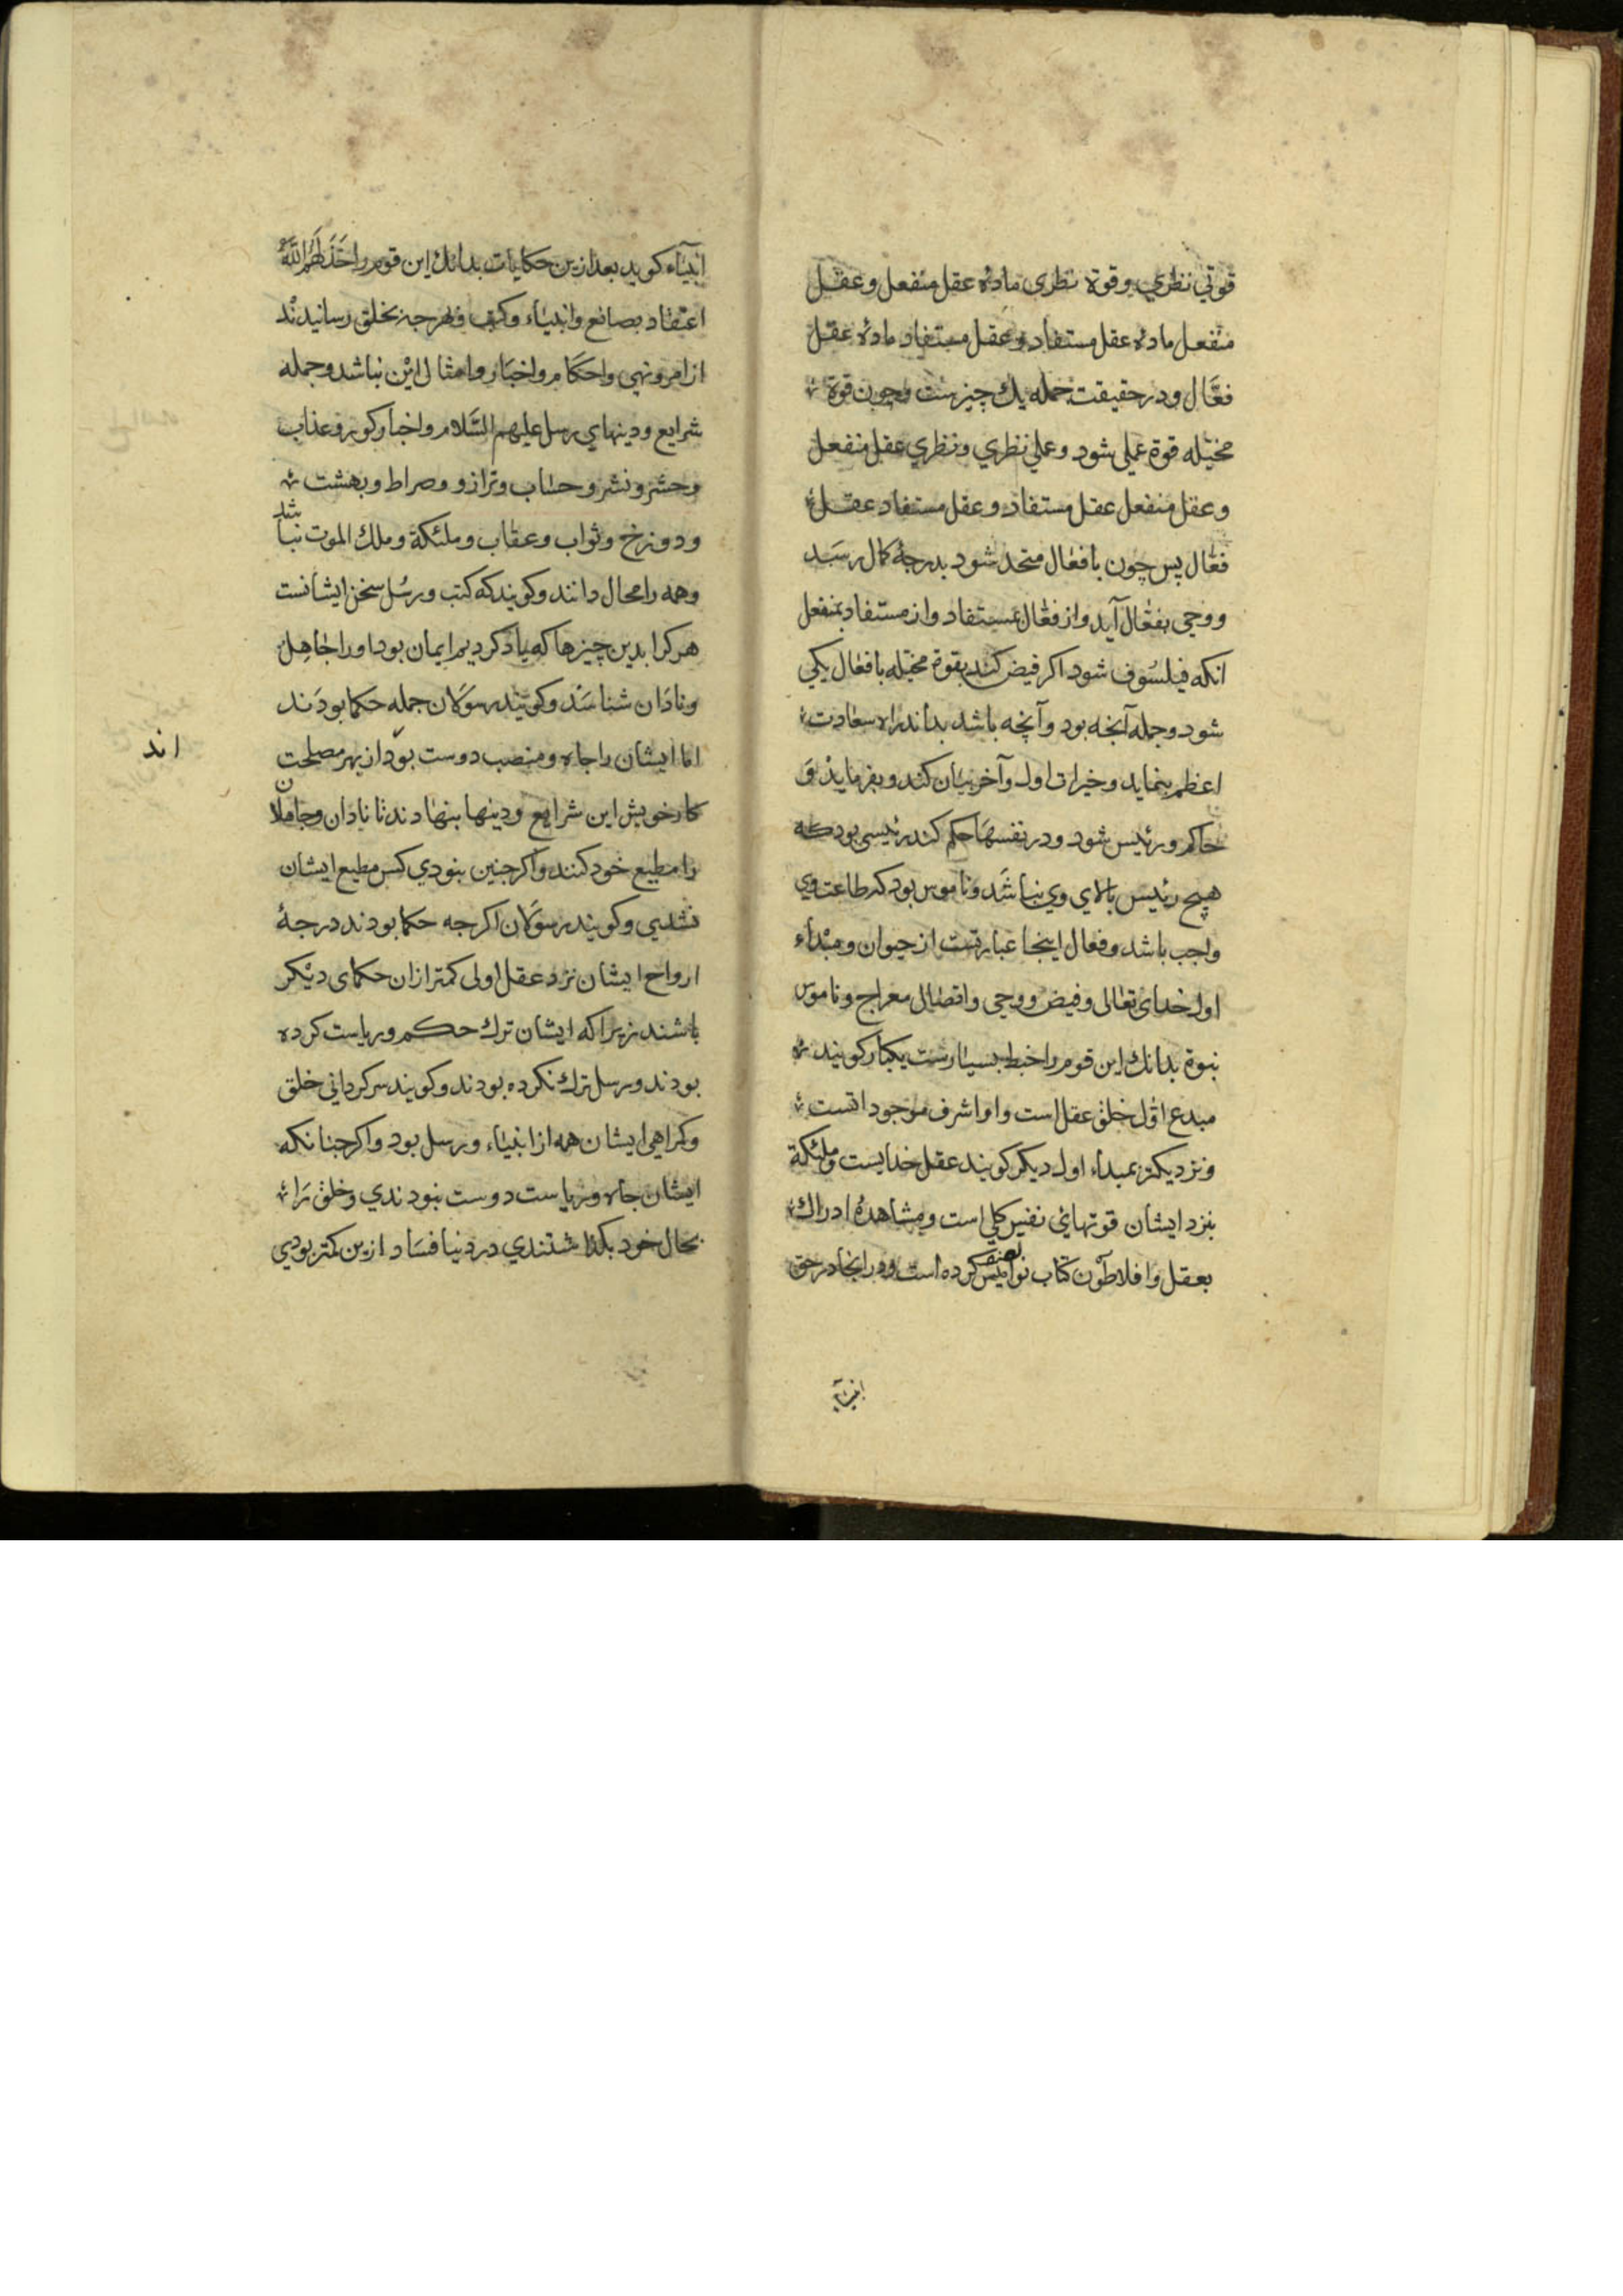 قوتی نظری وقوة نظری مادهٔ عقل منفعل وعقل
منفعل مادهٔ عقل مستفاد وعقل مستفاد مادهٔ عقل
فعّال ودر حقیقت جمله یك چیزست وچون قوة
مخیّله قوة عملی شود وعملی نظری ونظری عقل منفعل
وعقل منفعل عقل مستفاد وعقل مستفاد عقل
فعّال پس چون بافعّال متحد شود بدرجهٔ کمال رسد
ووحی بفعّال آید واز فعّال بمستفاد واز مستفاد بمنفعل
انکه فیلسوف شود اکر فیض کند بقوة مخیّله بافعال یکی
شود وجمله آنجه بود وآنچه باشد بداند راه سعادت
اعظم بنماید وخیرات اول وآخر بیان کند وبفرماید وَ
حاکم ورئیس شود ودر نفسها حکم کند رئیسی بود که
هیچ رئیس بالای وی نباشد وناموس بود که طاعت وی
واجب باشد وفعال اینجا عبارتست از حیوان ومبداء
اول خدای تعالی وفیض ووحی واتصال معراج وناموس
نبوة بدانك این قوم را خبط بسیارست یکبار کویند
مبدع اوّل خلق عقل است واو اشرف موجوداتست
ونزدیکتر بمبداء اول دیکر کویند عقل خدایست وملئکة
بنزد ایشان قوتهای نفس کلی است ومشاهدهٔ ادراك
بعقل وافلاطون کتاب نوامیس تصنیف کرده است ودر انجا در حق
انبیآء
انبیآء کوید بعد ازین حکایات بدانك این قوم را خذلهم الله
اعتقاد بصانع وانبیاء وکتب وهرجه بخلق رسانیدند
از امر ونهی واحکام واخبار وامثال این نباشد وجمله
شرایع ودینهای رسل علیهم السّلام واخبار کور وعذاب
وحشر ونشر وحساب وترازو وصراط وبهشت
ودوزخ وثواب وعقاب وملئکة وملك الموت نباشد
وهمه را محال دانند وکویند که کتب ورسُل سخن ایشانست
هرکرا بدین چیزها که یاد کردیم ایمان بود او را جاهل
ونادان شناسند وکویند رسولان جمله حکما بودند
اما ایشان را جاه ومنصب دوست بود از بهر مصلحت
اند
کار خویش این شرایع ودینها بنهادند تا نادان وجاهلان
را مطیع خود کنند واکر جنین نبودی کس مطیع ایشان
نشدیی وکویند رسولان اکرجه حکما بودند درجهٔ
ارواح ایشان نزد عقل اولی کمتر ازان حکمای دیکر
باشند زیرا که ایشان ترك حکم وریاست کرده
بودند ورسل ترك نکرده بودند وکویند سرکردانی خلق
وکمراهی ایشان همه از انبیاء ورسل بود واکر جنانکه
ایشان جاه وریاست دوست نبودندی وخلق را
بحال خود بکذاشتندی در دنیا فساد ازین کمتر بودی